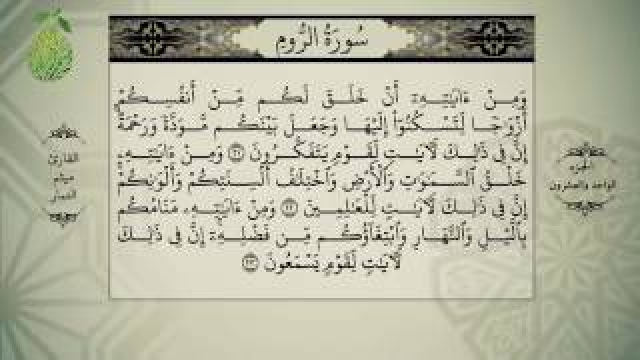 سُورَةُ الرُّومِ
وَمِنْ ءَايَـٰتِهِۦٓ أَنْ خَلَقَ لَكُم مِّنْ أَنفُسِكُمْ
أَزْوَٰجًا لِّتَسْكُنُوٓا۟ إِلَيْهَا وَجَعَلَ بَيْنَكُم مَّوَدَّةً وَرَحْمَةً
إِنَّ فِى ذَٰلِكَ لَـَٔايَـٰتٍ لِّقَوْمٍ يَتَفَكَّرُونَ ٢١ وَمِنْ ءَايَـٰتِهِۦ
خَلْقُ ٱلسَّمَـٰوَٰتِ وَٱلْأَرْضِ وَٱخْتِلَـٰفُ أَلْسِنَتِكُمْ وَأَلْوَٰنِكُمْ
إِنَّ فِى ذَٰلِكَ لَـَٔايَـٰتٍ لِّلْعَـٰلِمِينَ ٢٢ وَمِنْ ءَايَـٰتِهِۦ مَنَامُكُم
بِٱلَّيْلِ وَٱلنَّهَارِ وَٱبْتِغَآؤُكُم مِّن فَضْلِهِۦٓ إِنَّ فِى ذَٰلِكَ
لَـَٔايَـٰتٍ لِّقَوْمٍ يَسْمَعُونَ ٢٣
الجزء
الواحد والعشرون
القارئ
ميثم
التمار